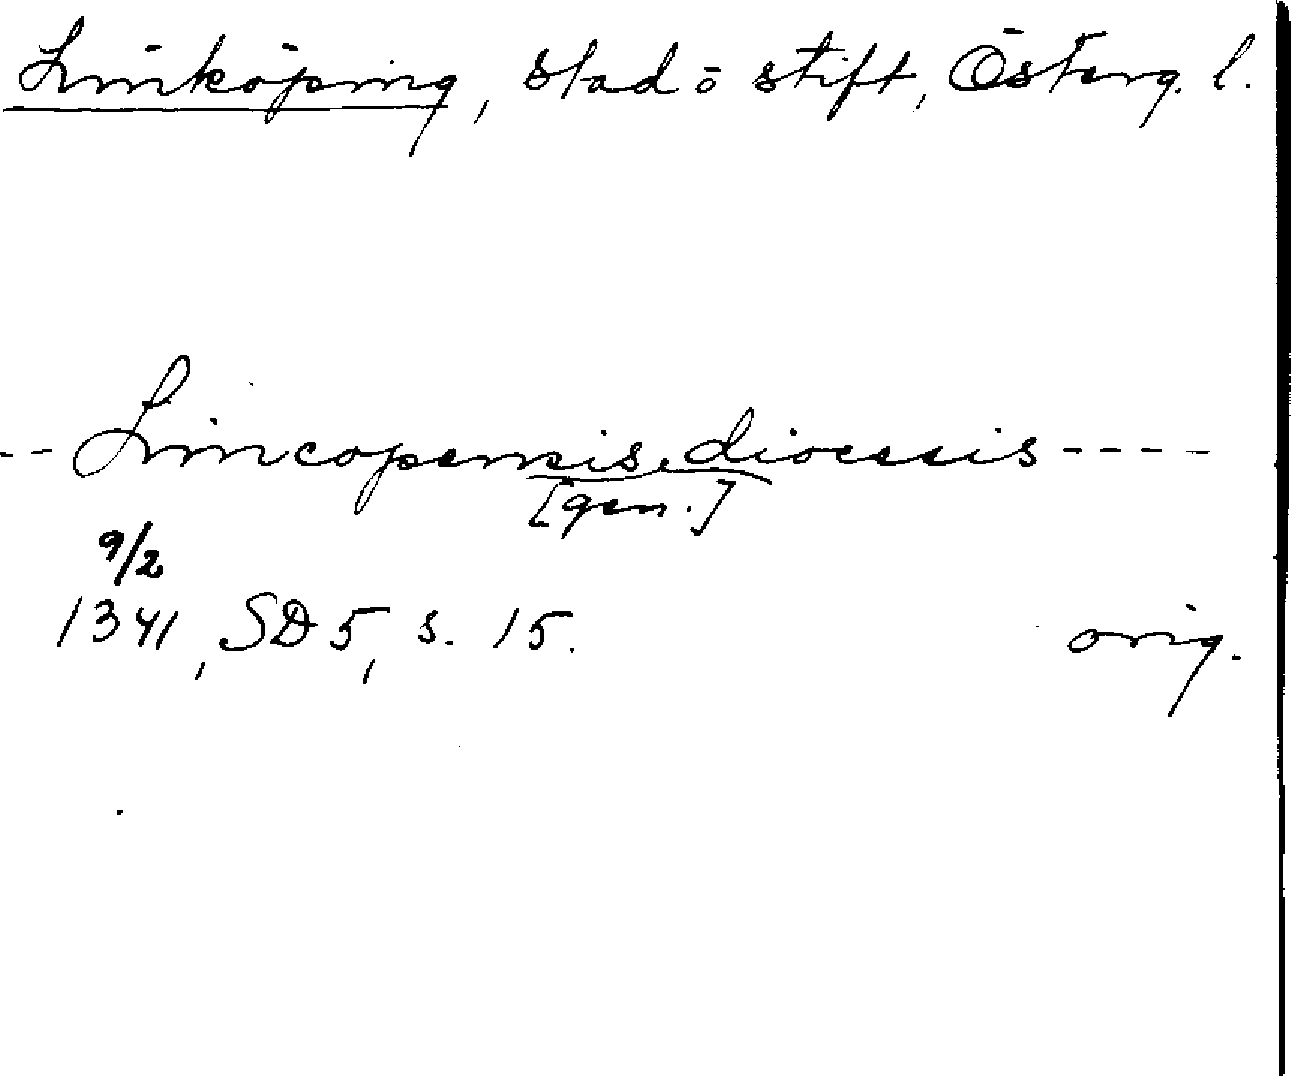 Linköping, stad o stift, Österg. l.
-- Lincopensis diocesis ----
[gen.]
9/2
1341, SD 5, s. 15. orig.